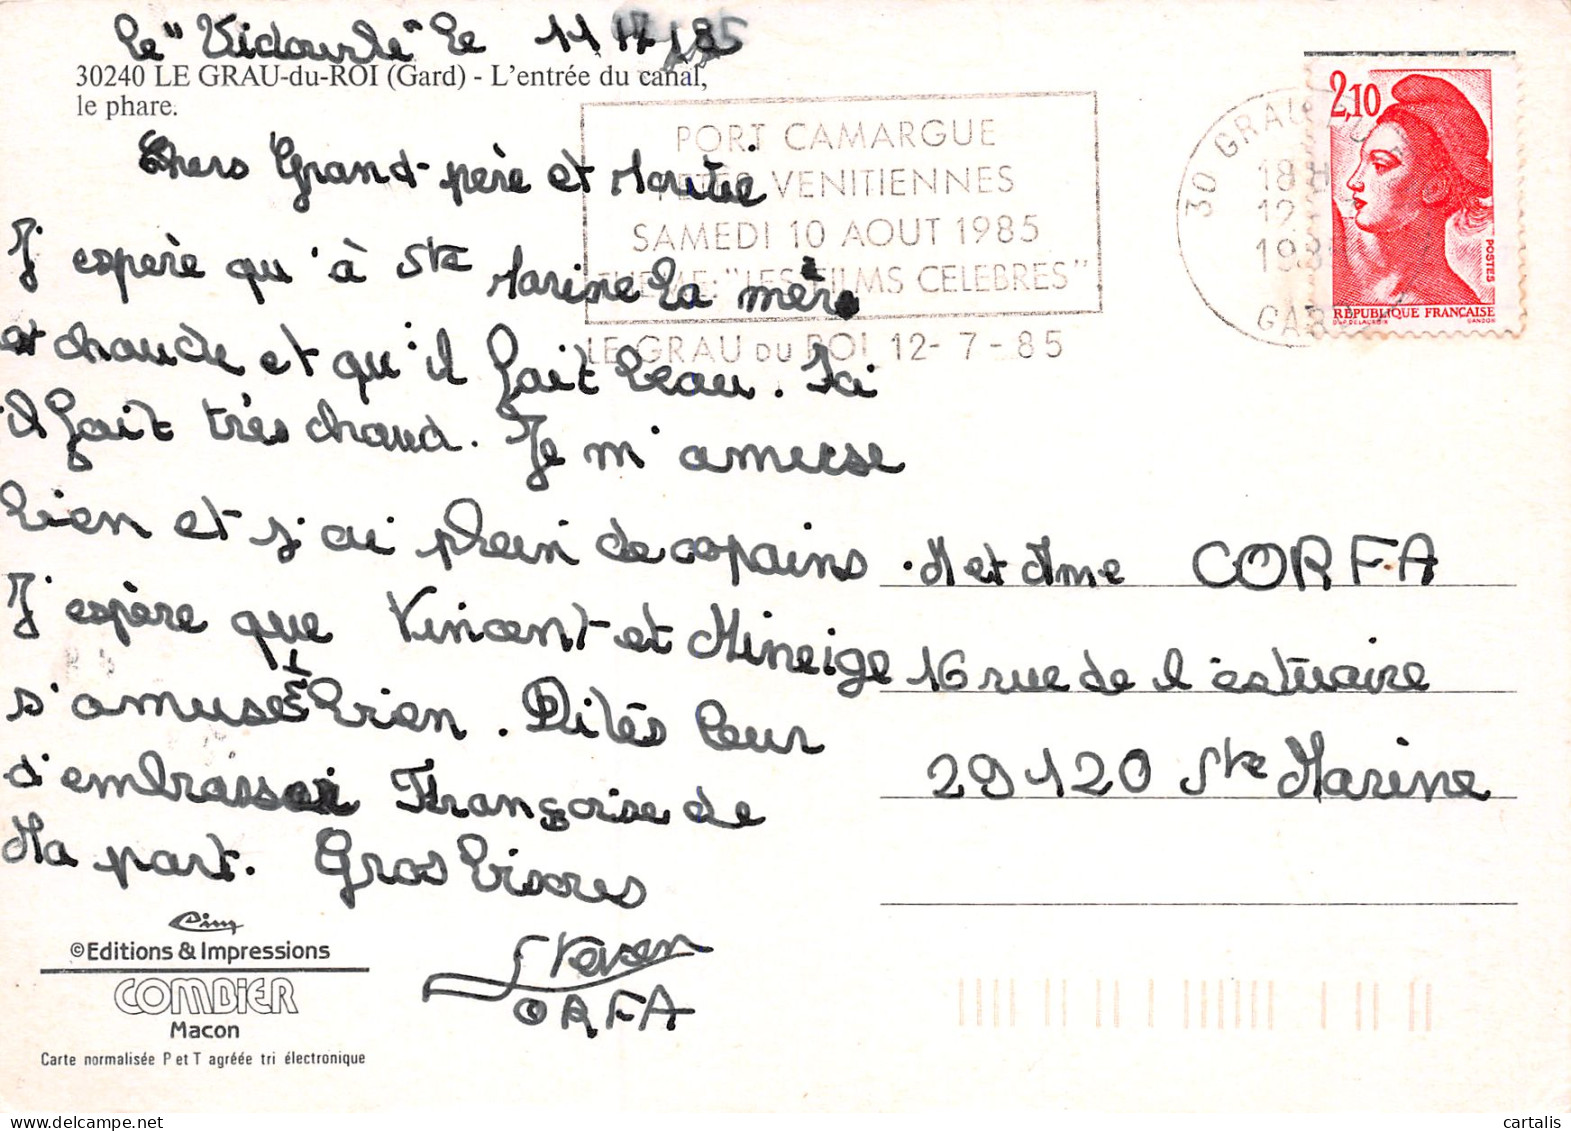 Le "Vidourle" le 11 85
30240 LE GRAU-du-ROI (Gard) - L'entrée du canal,
le phare.
Chers Grand-père et
J'espère qu'à Ste Marine la mèr
et chaude et qu'il fait beau. Ici
il fait très chaud. Je m'amuse
bien et j'ai plein de copains
J'espère que Vincent et Mineige
s'amuse bien. Dites leur
d'embrasser Françoise de
Ma part. Gros Bisores
Steven
CORFA
PORT CAMARGUE
FETES VENITIENNES
SAMEDI 10 AOUT 1985
THEME: "LES FILMS CELEBRES"
LE GRAU DU ROI 12-7-85
30 GRAU DU
18H
12
198
GARD
2,10
POSTES
RÉPUBLIQUE FRANÇAISE
D'AP DELACROIX GANDON
M et Mme CORFA
16 rue de l'estuaire
29120 Ste Marine
Cim
©Editions & Impressions
COMBIER
Macon
Carte normalisée P et T agréée tri électronique
cartalis